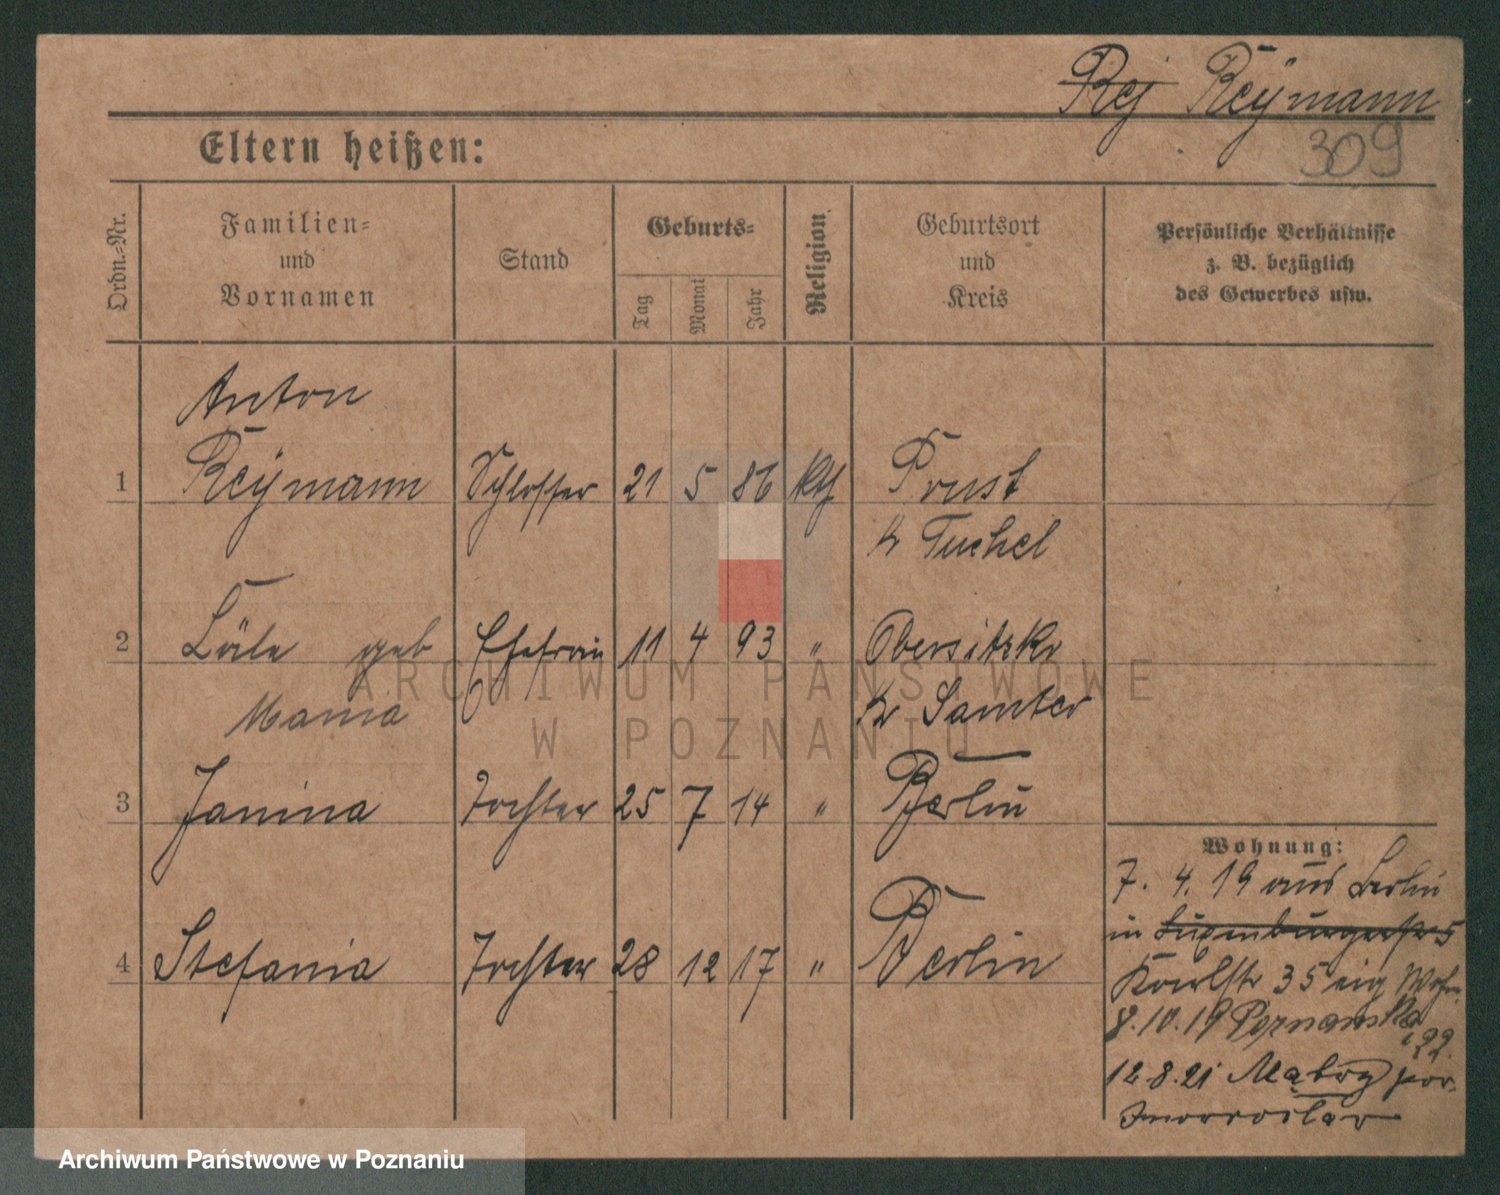 Rej Reÿmann
309
Eltern heißen:
Ordn.-Nr.
Familien-
und
Vornamen
Stand
Geburts-
Tag
Monat
Jahr
Religion
Geburtsort
und
Kreis
Persönliche Verhältnisse
z. B. bezüglich
des Gewerbes usw.
Anton
1 Reÿmann Schlosser 21 5 86 kth Prust
Kr Tuchel
2 geb Ehefrau 11 4 93 " Obersitzko
Mania Kr Samter
3 Janina Tochter 25 7 14 " Berlin
Wohnung:
7. 4. 19 aus Berlin
in Luxenburgerstr 5
4 Stefania Tochter 28 12 17 " Berlin
Karlstr 35 eig Wohn
8.10.19 Poznanska
22.
12.8.21 Mątwy pow.
Inowrocław
ARCHIWUM PAŃSTWOWE
W POZNANIU
Archiwum Państwowe w Poznaniu